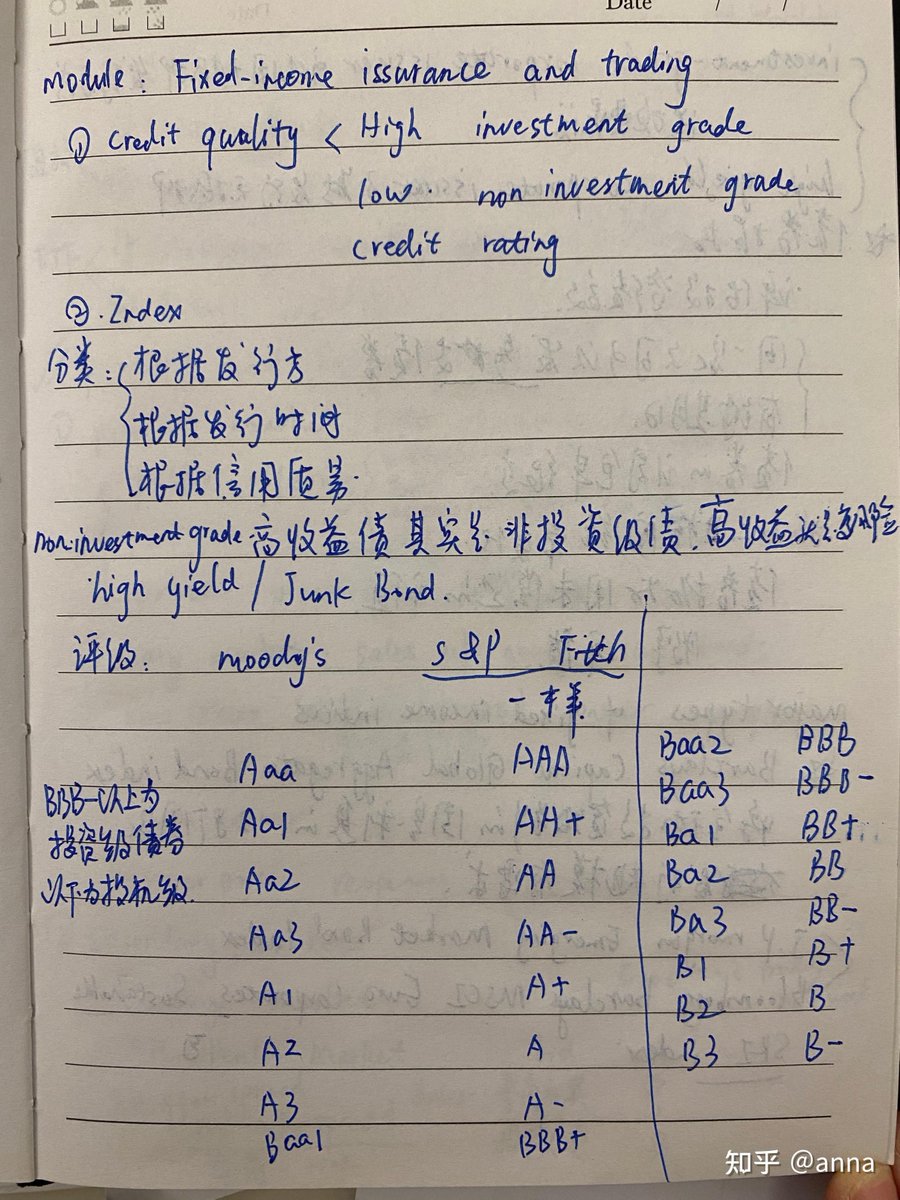 Date / /
module: Fixed-income issurance and trading
① Credit quality < High investment grade
low. non investment grade
credit rating
②. Index
分类: 根据发行方
根据发行时间
根据信用质量.
non-investment grade 高收益债其实是非投资级债. 高收益
high yield / Junk Bond.
评级: moody's S&P Fitch
一样.
Aaa AAA
BBB-以上为
投资级债券
以下为投机级.
Aa1 AA+
Aa2 AA
Aa3 AA-
A1 A+
A2 A
A3 A-
Baa1 BBB+
Baa2 BBB
Baa3 BBB-
Ba1 BB+
Ba2 BB
Ba3 BB-
B1 B+
B2 B
B3 B-
知乎 @anna